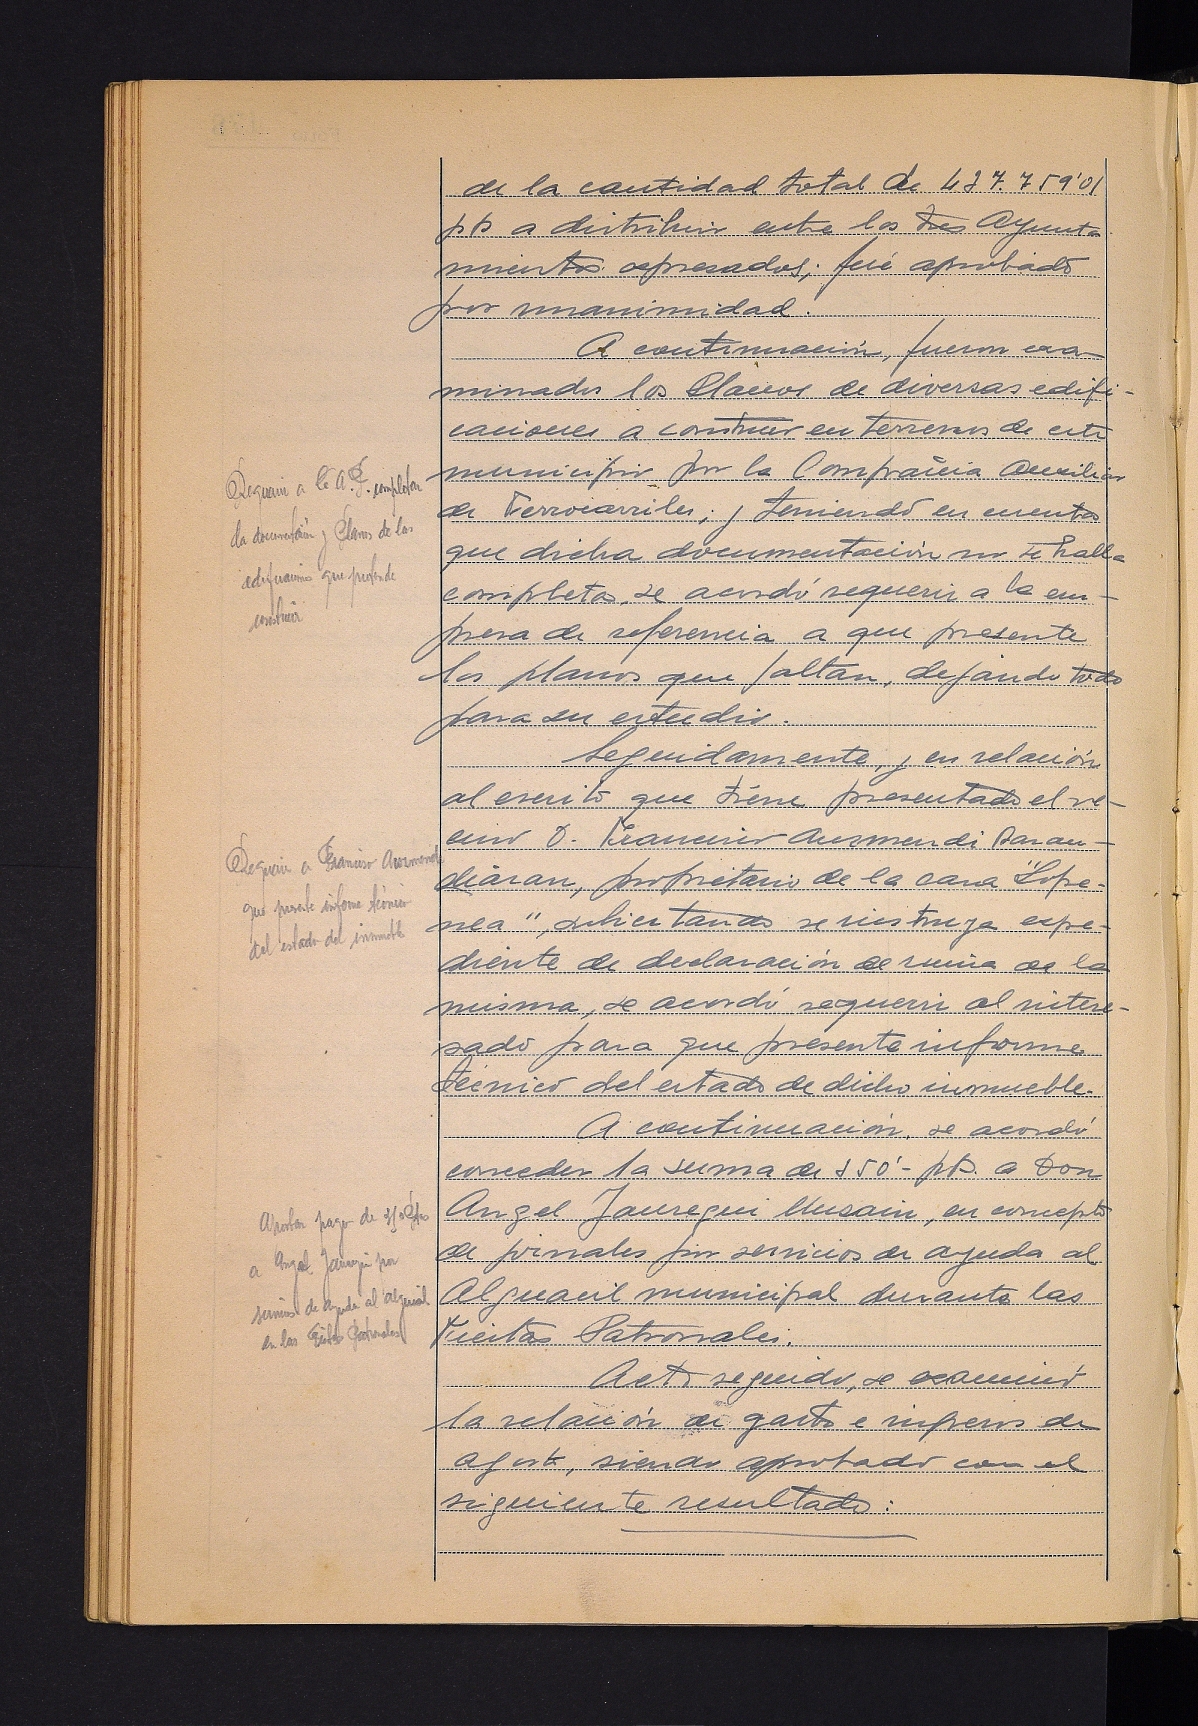 de la cantidad total de 437.759'01
pts a distribuir entre los tres Ayunta
mientos expresados; fué aprobado
por unanimidad.
A continuación, fueron exa-
minados los Planos de diversas edifi-
caciones a construir en terrenos de este
municipio por la Compañia Auxiliar
de Ferrocarriles; y teniendo en cuenta
que dicha documentación no se halla
completa, se acordó requerir a la em-
presa de referencia a que presente
los planos que faltan, dejando todo
para su estudio.
Requerir a la A.F. completar
la documentación y Planos de las
edificaciones que pretende
construir
Seguidamente, y en relación
al escrito que tiene presentado el ve-
cino D. Francisco Auzmendi Baran-
diaran, propietario de la casa "Lope-
nea", solicitando se instruya expe-
diente de declaración de ruina de la
misma, se acordó requerir al intere-
sado para que presente informe
técnico del estado de dicho inmueble.
Requerir a Francisco
que presente informe técnico
del estado del inmueble
A continuación, se acordó
conceder la suma de 350'- pts. a Don
Angel Jauregui, en concepto
de jornales por servicios de ayuda al
Alguacil municipal durante las
Fiestas Patronales.
Aprobar pago de pts
a Angel Jauregui por
servicios de ayuda al alguacil
en las Fiestas Patronales
Acto seguido, se examinó
la relación de gastos e ingresos de
agosto, siendo aprobado con el
siguiente resultado: